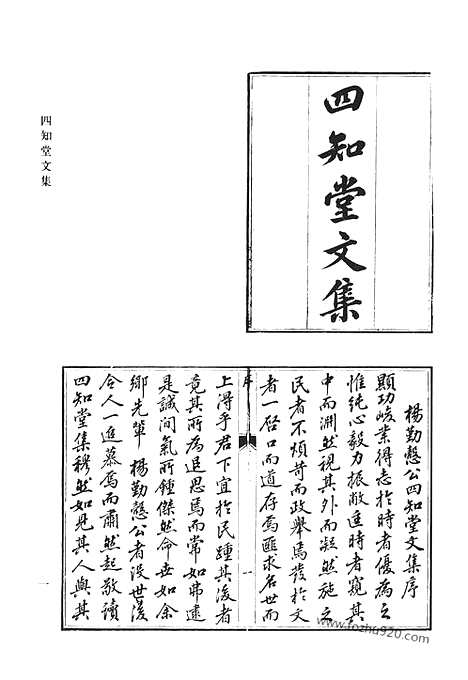 四知堂文集
四知堂文集
楊勤慤公四知堂文集序
顯功峻業得志於時者優為之
惟純心毅力振敝匡時者窺其
中而淵然視其外而凝然施之
民者不煩苛而政舉焉發於文
者一啓口而道存焉匪求名世而
序
一
上得乎君下宜於民踵其後者
竟其所為追思焉而常如弗逮
是誠間氣所鍾傑然命世如余
鄉先輩楊勤慤公者沒世後
令人一進慕焉而肅然起敬讀
四知堂集穆然如見其人與其
一
www.fozhu920.com